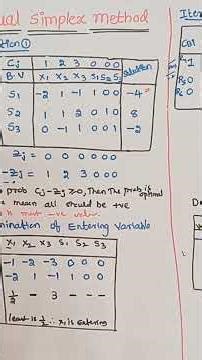 ual Simplex Method
tion ①
Cj 1 2 3 0 0 0 Solution
B.V X1 X2 X3 S1 S2 S3
S1 -2 1 -1 1 0 0 -4
S2 1 1 2 0 1 0 8
S3 0 -1 1 0 0 1 -2
Zj = 0 0 0 0 0 0
-Zj = 1 2 3 0 0 0
prob Cj-Zj ≥0, Then The prob is optimal
mean all should be +ve
must -ve value
mination of Entering Variable
X1 X2 X3 S1 S2 S3
-1 -2 -3 0 0 0
-2 1 -1 1 0 0
1/2 - 3 - - -
least is 1/2 ∴ X1 is Entering
Iter
CBi
0
0
D